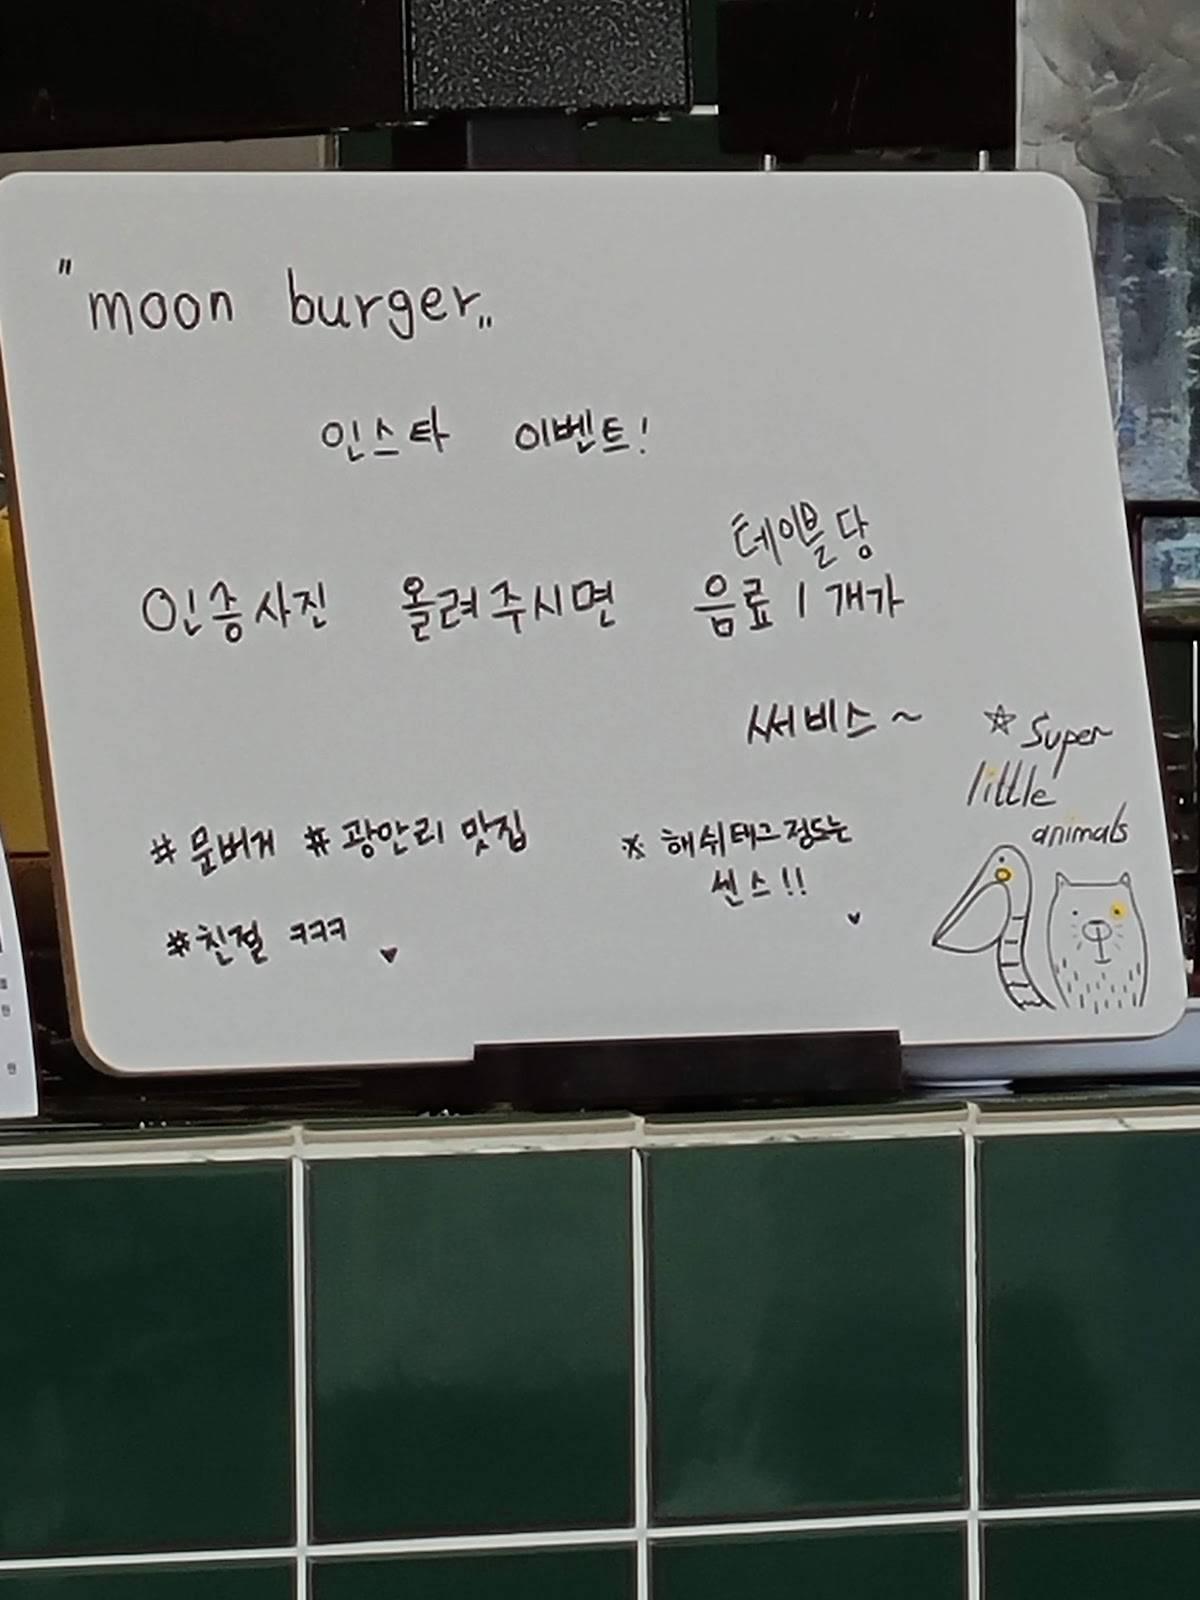 "moon burger"
인스타 이벤트!
테이블당
인증사진 올려주시면 음료 1개가
써비스~
☆ Super
little
animals
#문버거 #광안리 맛집
※ 해쉬태그정도는
센스!!
#친절 ㅋㅋㅋ ♥
♥